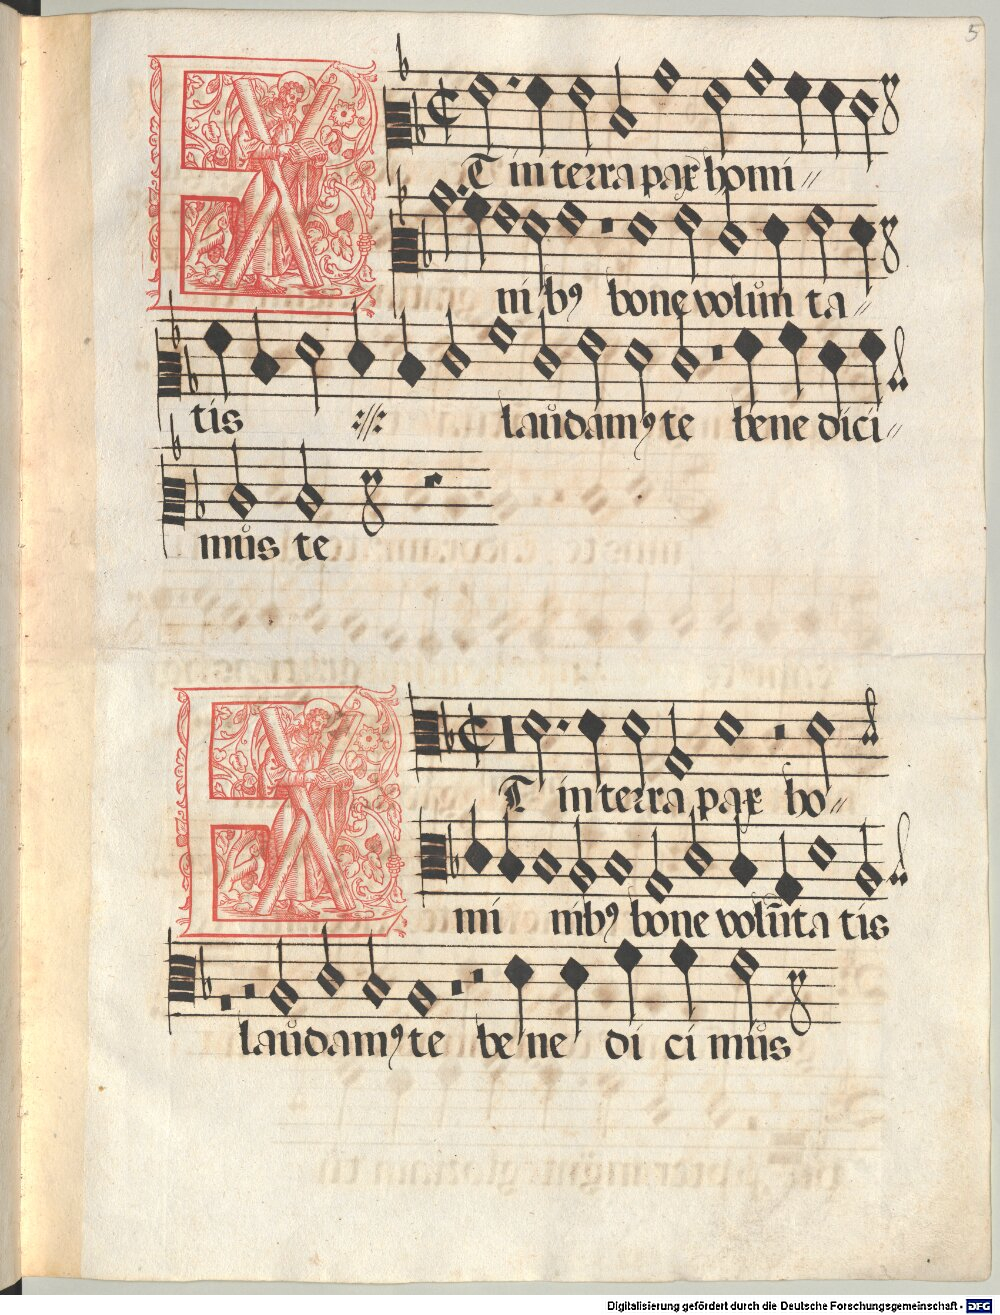 5
ET in terra pax homi
nibꝰ bone volun ta
tis laudamꝰ te bene dici
mus te
ET in terra pax ho
mi nibꝰ bone volūta tis
laudamꝰ te bene di ci mus
Digitalisierung gefördert durch die Deutsche Forschungsgemeinschaft - DFG